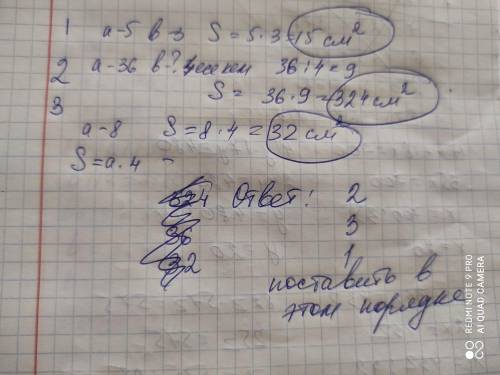 1 a-5 в-3 S = 5·3=15 см²
2 a-36 в-? 36:4=9
S= 36·9=324см²
3
a-8 S=8·4=32 см²
S=a·4 -
Ответ! 2
3
32 1
поставить в
этом порядке
REDMI NOTE 9 PRO
AI QUAD CAMERA